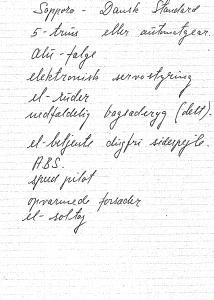 Sapporo - Dansk Standard
5-trins eller automatgear.
alu-fælge
elektronisk servostyring
el-ruder
nedfældelig bagsæderyg (delt).
el-betjente dugfri sidespejle.
ABS.
speed pilot
opvarmede forsæder
el-soltag